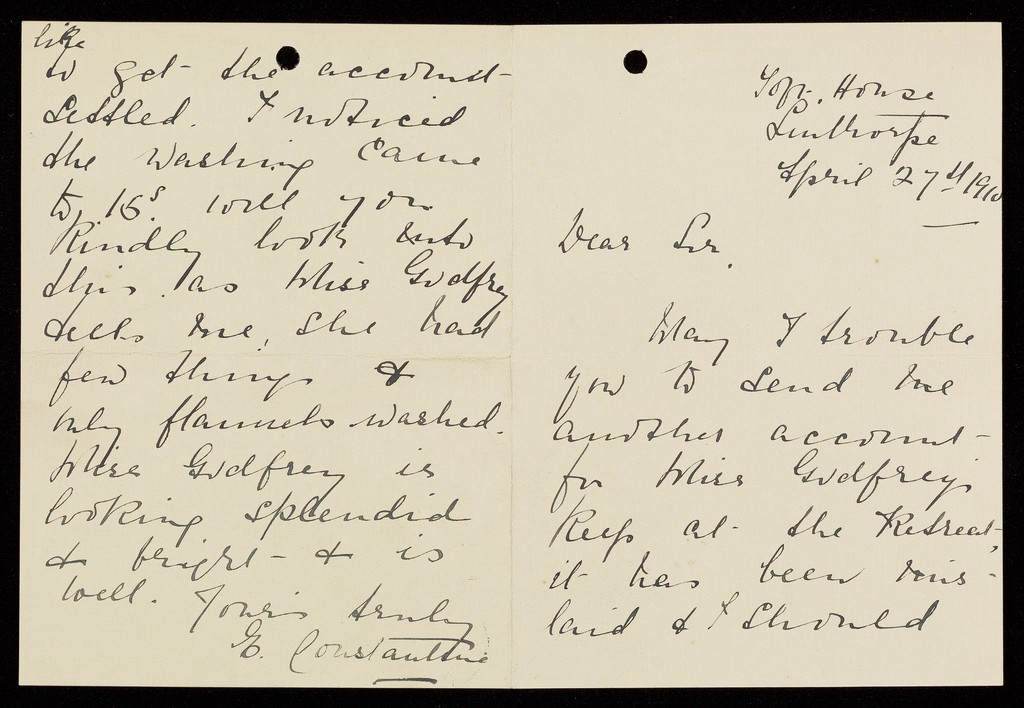 Toft. House
Linthorpe
April 27th 1910
Dear Sir,
May I trouble
you to send me
another account
for Miss Godfrey's
keep at the Retreat,
it has been mis-
laid & I should
like
to get the account
settled. I noticed
the washing came
to 16s. will you
kindly look into
this, as Miss Godfrey
tells me, she had
few things &
only flannels washed.
Miss Godfrey is
looking splendid
& bright & is
well. Yours truly
E. Constantine